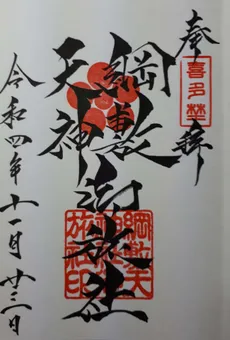 奉拝
喜多埜
綱敷
天神
御旅社
綱敷天
神御
旅社印
令和四年十一月廿三日